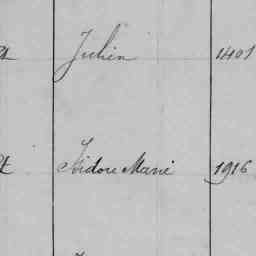 Julien 1401
t Isidore Marie 1916